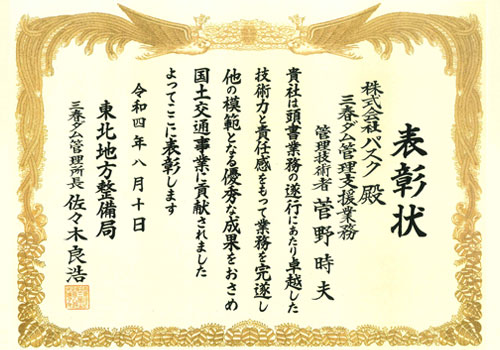 表彰状
株式会社パスク 殿
三春ダム管理支援業務
管理技術者 菅野時夫
貴社は頭書業務の遂行にあたり卓越した
技術力と責任感をもって業務を完遂し
他の模範となる優秀な成果をおさめ
国土交通事業に貢献されました
よってここに表彰します
令和四年八月十日
東北地方整備局
三春ダム管理所長 佐々木良浩